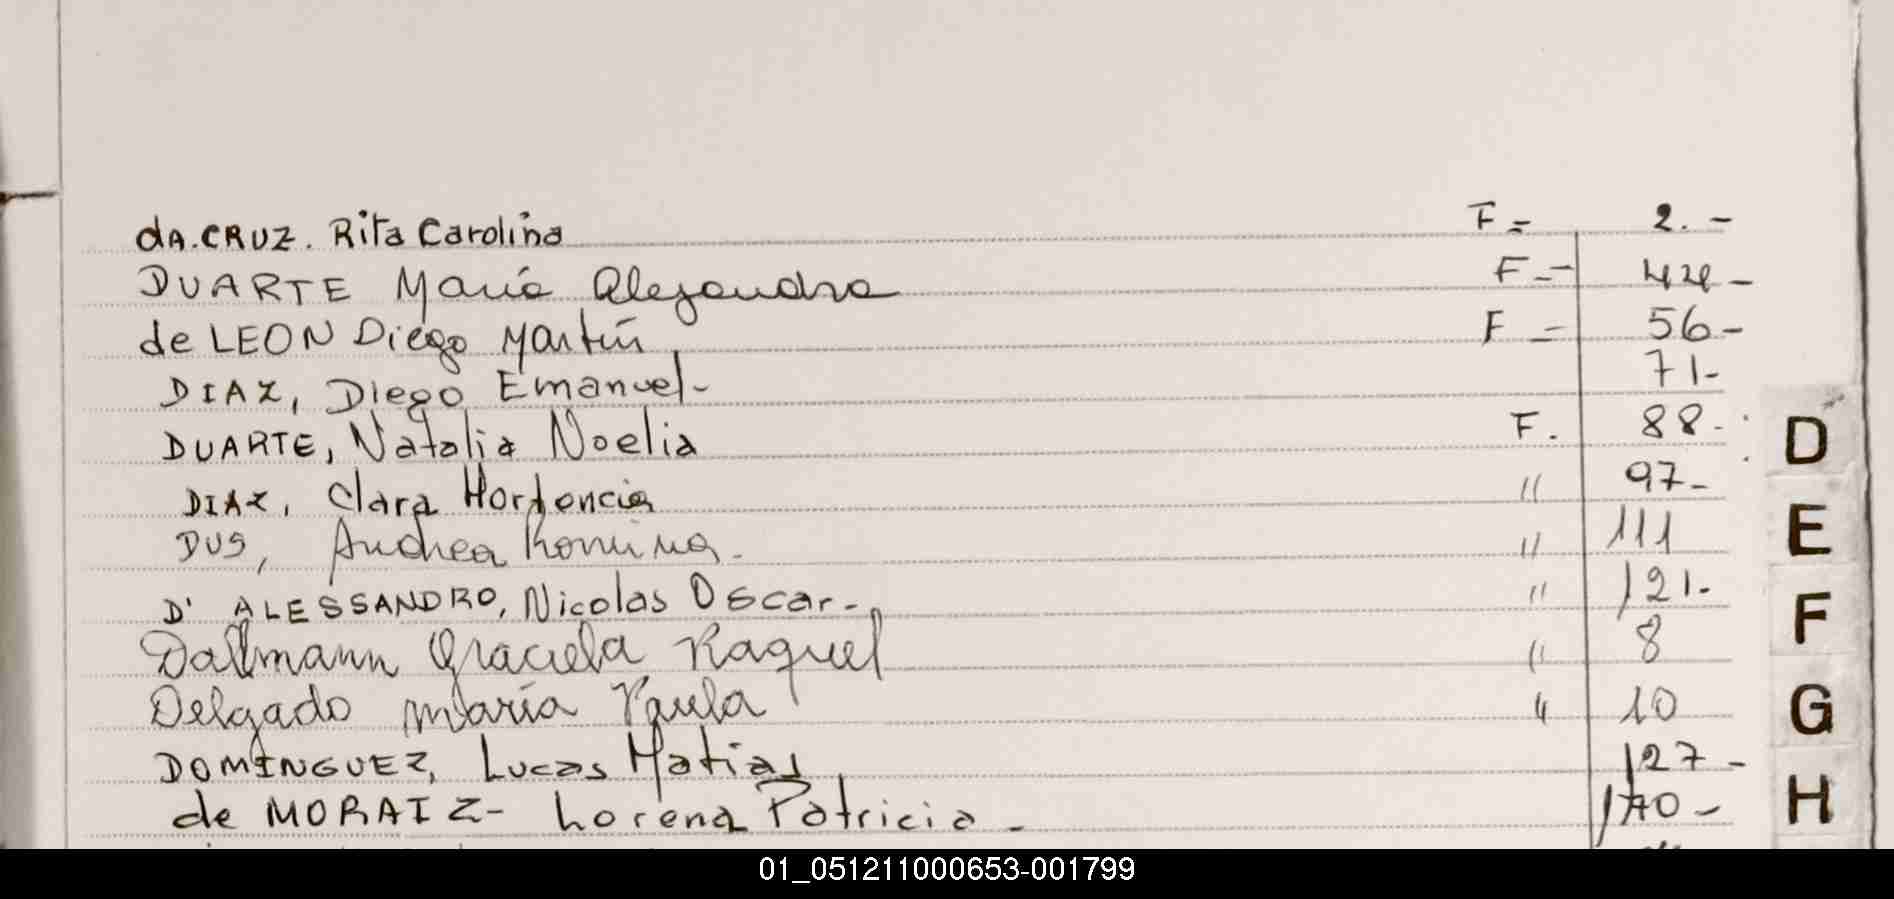 dA.CRUZ. Rita Carolina F= 2.-
DUARTE María Alejandra F-- 44-
de LEON Diego Martín F = 56-
DIAZ, Diego Emanuel- 71-
DUARTE, Natalia Noelia F. 88-
DIAZ, Clara Hortencia " 97-
DUS, Andrea Romina. " 111
D' ALESSANDRO, Nicolas Oscar- " 121-
Dallmann Graciela Raquel " 8
Delgado María Paula " 10
DOMINGUEZ, Lucas Matias 127-
de MORAIZ- Lorena Patricia -
D
E
F
G
H
01_051211000653-001799